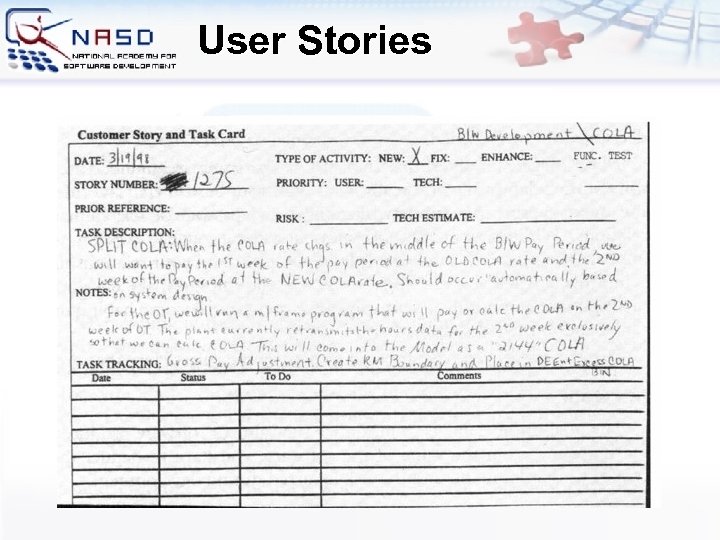 NASD
NATIONAL ACADEMY FOR
SOFTWARE DEVELOPMENT
User Stories
Customer Story and Task Card BIW Development COLA
DATE: 3/19/98 TYPE OF ACTIVITY: NEW: X FIX: ENHANCE: FUNC. TEST
STORY NUMBER: 1275 PRIORITY: USER: TECH:
PRIOR REFERENCE: RISK: TECH ESTIMATE:
TASK DESCRIPTION:
SPLIT COLA: When the COLA rate chgs. in the middle of the BIW Pay Period, we
will want to pay the 1ST week of the pay period at the OLD COLA rate and the 2ND
week of the Pay Period at the NEW COLA rate. Should occur automatically based
NOTES: on system design
For the OT, we will run a m/frame program that will pay or calc the COLA on the 2ND
week of OT. The plant currently retransmits the hours data for the 2nd week exclusively
so that we can calc COLA. This will come into the Model as a "2144" COLA
TASK TRACKING: Gross Pay Adjustment. Create RM Boundary and Place in DEEnt Excess COLA
BIN
Date Status To Do Comments